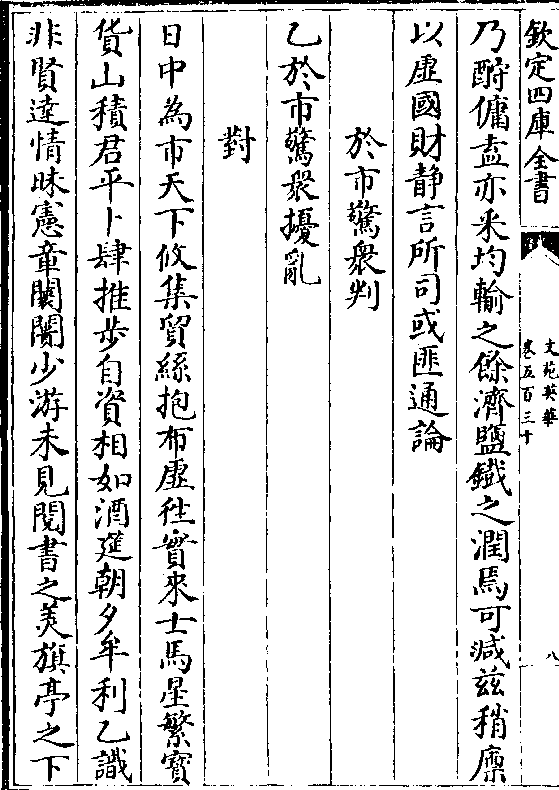 欽定四庫全書
文苑英華
卷五百三十
八
乃酧傭盍亦采均輸之餘濟鹽鐵之潤焉可减兹稍廪
以虛國財静言所司或匪通論
於市驚衆判
乙於市驚衆擾亂
對
日中為市天下攸集貿絲抱布虛徃實來士馬星繁寳
貨山積君平卜肆推步自資相如酒𨑳朝夕牟利乙識
非賢達情昧憲章闤闠少游未見閱書之美旗亭之下